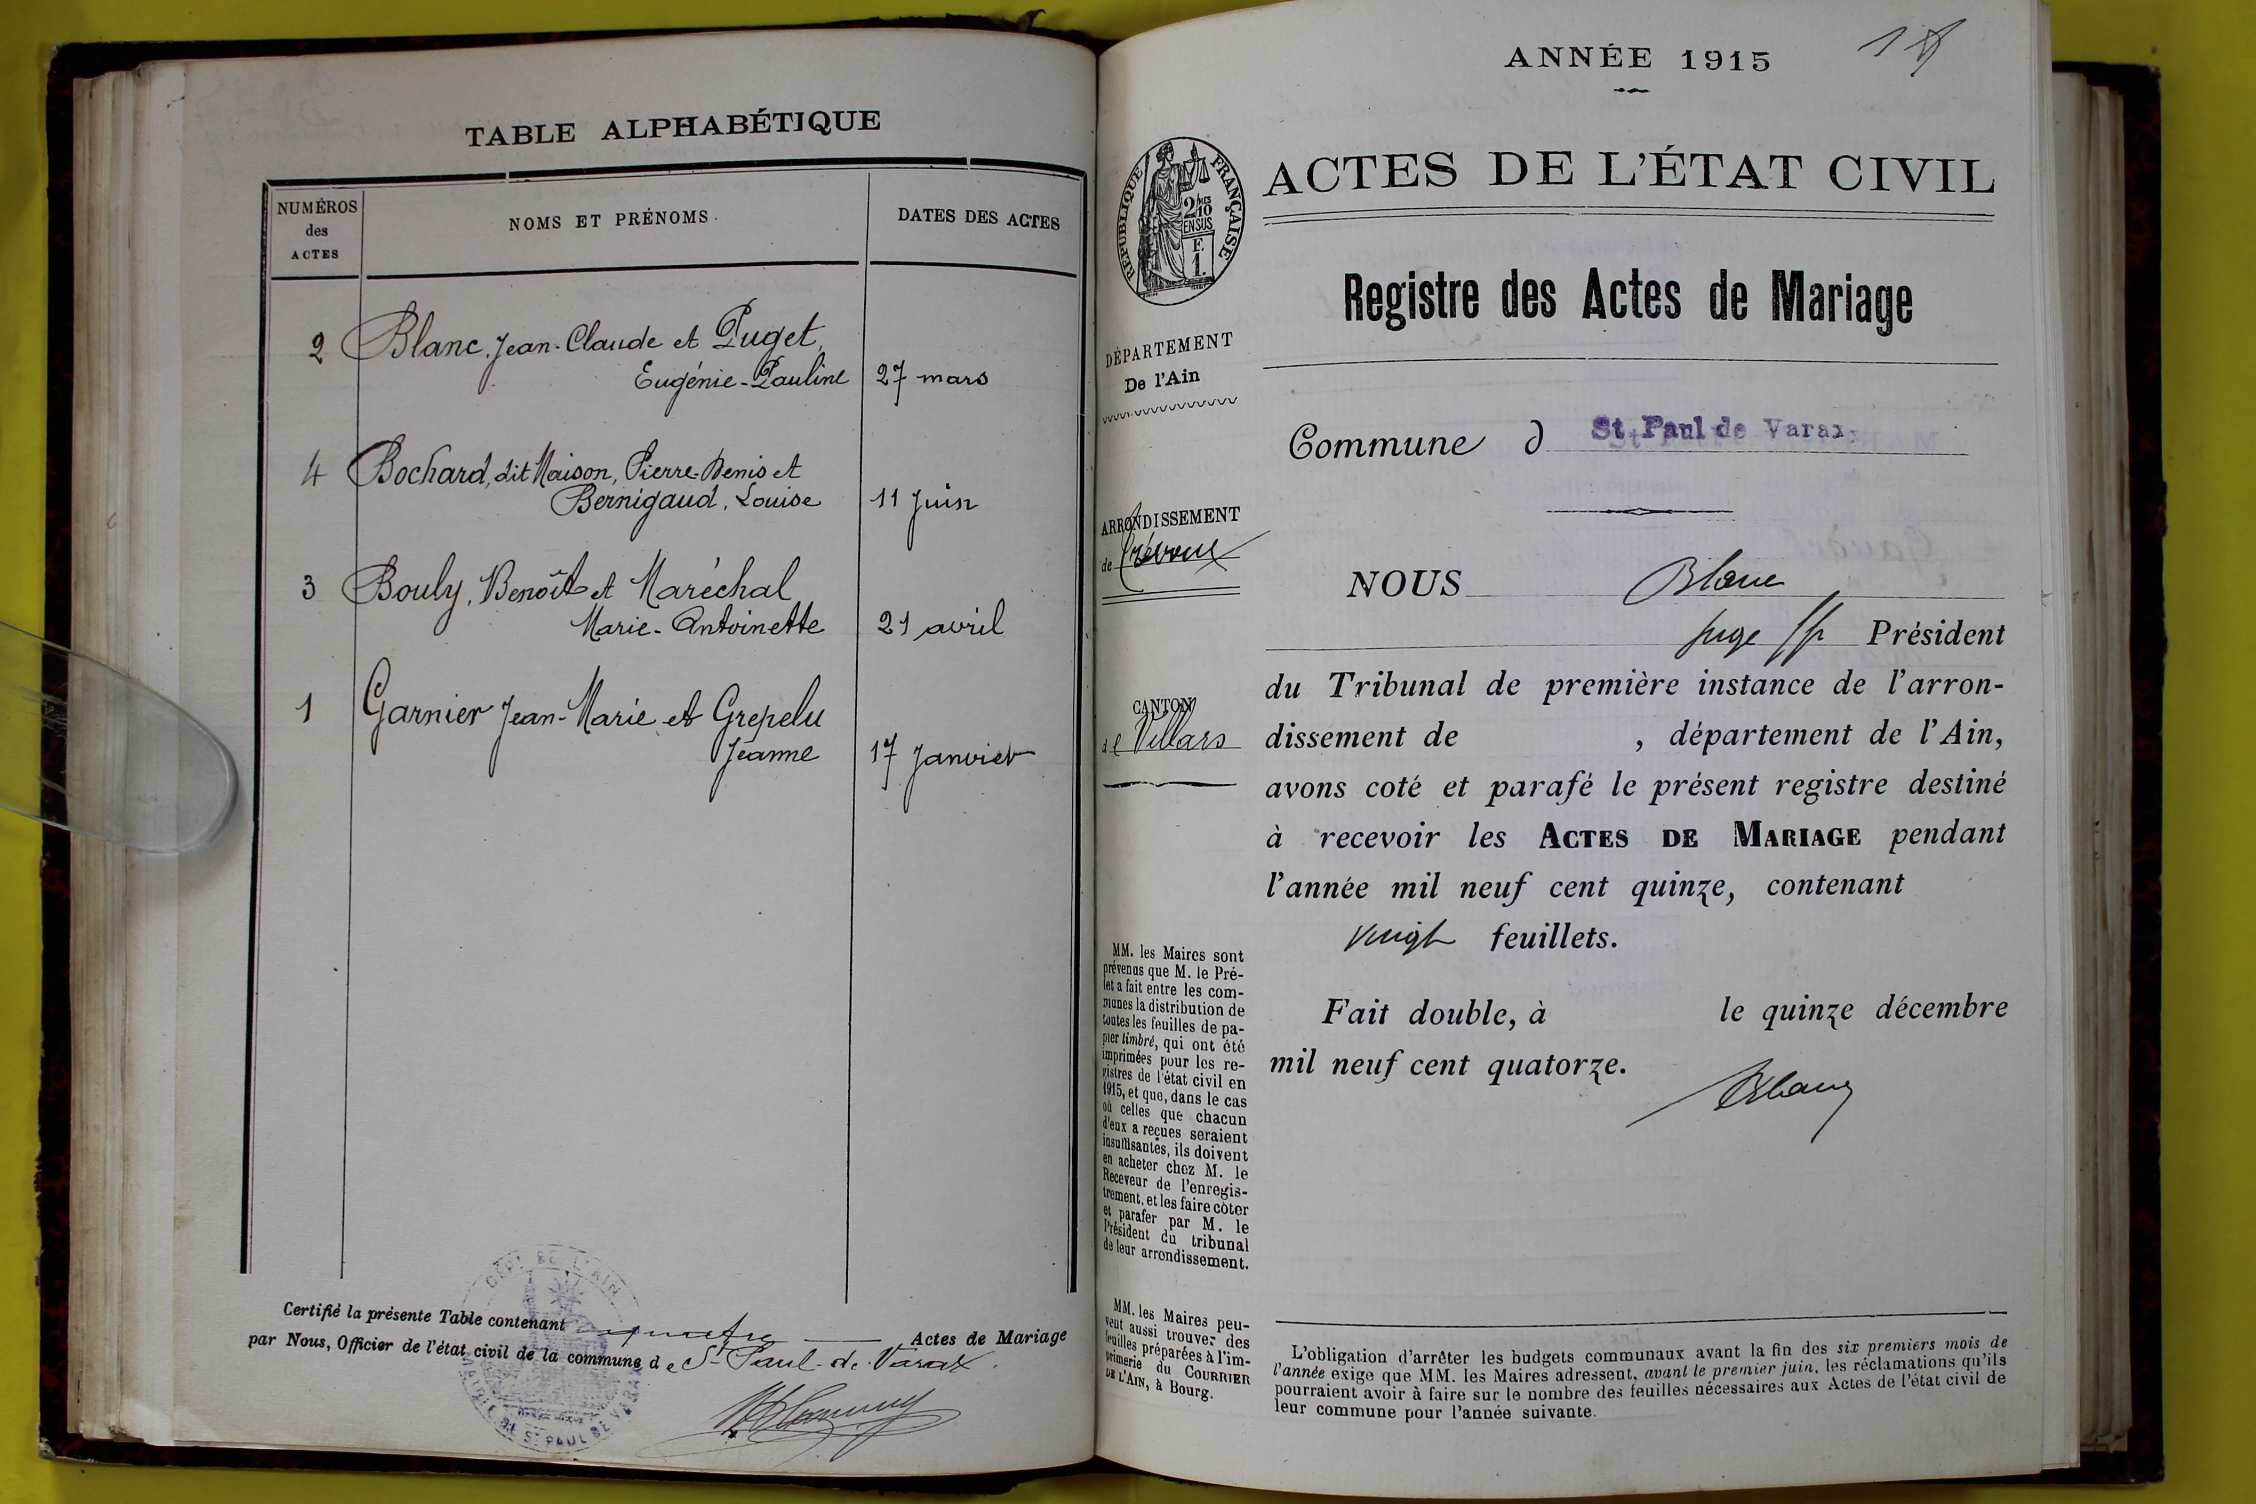 TABLE ALPHABÉTIQUE
NUMÉROS
des
ACTES
NOMS ET PRÉNOMS.
DATES DES ACTES
2 Blanc, Jean-Claude et Puget,
Eugénie-Pauline 27 mars
4 Bochard, dit Maison, Pierre-Denis et
Bernigaud, Louise 11 Juin
3 Bouly, Benoît et Maréchal
Marie-Antoinette 21 avril
1 Garnier Jean-Marie et Grepelu
Jeanne 17 Janvier
Certifié la présente Table contenant quatre Actes de Mariage
par Nous, Officier de l'état civil de la commune de St Paul-de-Varax.
DÉPT DE L'AIN
MAIRIE DE ST PAUL DE VARAX
ANNÉE 1915
RÉPUBLIQUE FRANÇAISE
2/10
EN SUS
F.
1.
ACTES DE L'ÉTAT CIVIL
Registre des Actes de Mariage
DÉPARTEMENT
De l'Ain
Commune d St Paul de Varax
ARRONDISSEMENT
de Trévoux
CANTON
de Villars
NOUS Blanc
juge ff Président
du Tribunal de première instance de l'arron-
dissement de , département de l'Ain,
avons coté et parafé le présent registre destiné
à recevoir les ACTES DE MARIAGE pendant
l'année mil neuf cent quinze, contenant
vingt feuillets.
Fait double, à le quinze décembre
mil neuf cent quatorze.
Blanc
MM. les Maires sont
prévenus que M. le Pré-
fet a fait entre les com-
munes la distribution de
toutes les feuilles de pa-
pier timbré, qui ont été
imprimées pour les re-
gistres de l'état civil en
1915, et que, dans le cas
où celles que chacun
d'eux a reçues seraient
insuffisantes, ils doivent
en acheter chez M. le
Receveur de l'enregis-
trement, et les faire côter
et parafer par M. le
Président du tribunal
de leur arrondissement.
MM. les Maires peu-
vent aussi trouver des
feuilles préparées à l'im-
primerie du COURRIER
DE L'AIN, à Bourg.
L'obligation d'arrêter les budgets communaux avant la fin des six premiers mois de
l'année exige que MM. les Maires adressent, avant le premier juin, les réclamations qu'ils
pourraient avoir à faire sur le nombre des feuilles nécessaires aux Actes de l'état civil de
leur commune pour l'année suivante.